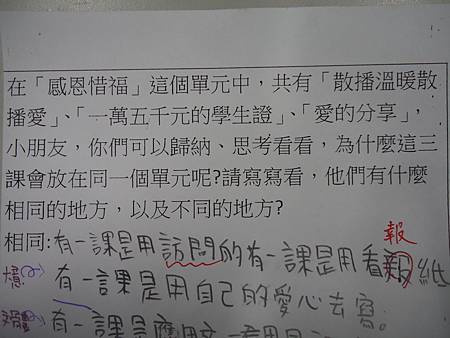 在「感恩惜福」這個單元中，共有「散播溫暖散
播愛」、「一萬五千元的學生證」、「愛的分享」，
小朋友，你們可以歸納、思考看看，為什麼這三
課會放在同一個單元呢?請寫寫看，他們有什麼
相同的地方，以及不同的地方?
報
相同:有一課是用訪問的有一課是用看 紙
有一課是用自己的愛心去寫。
有一課是應用文